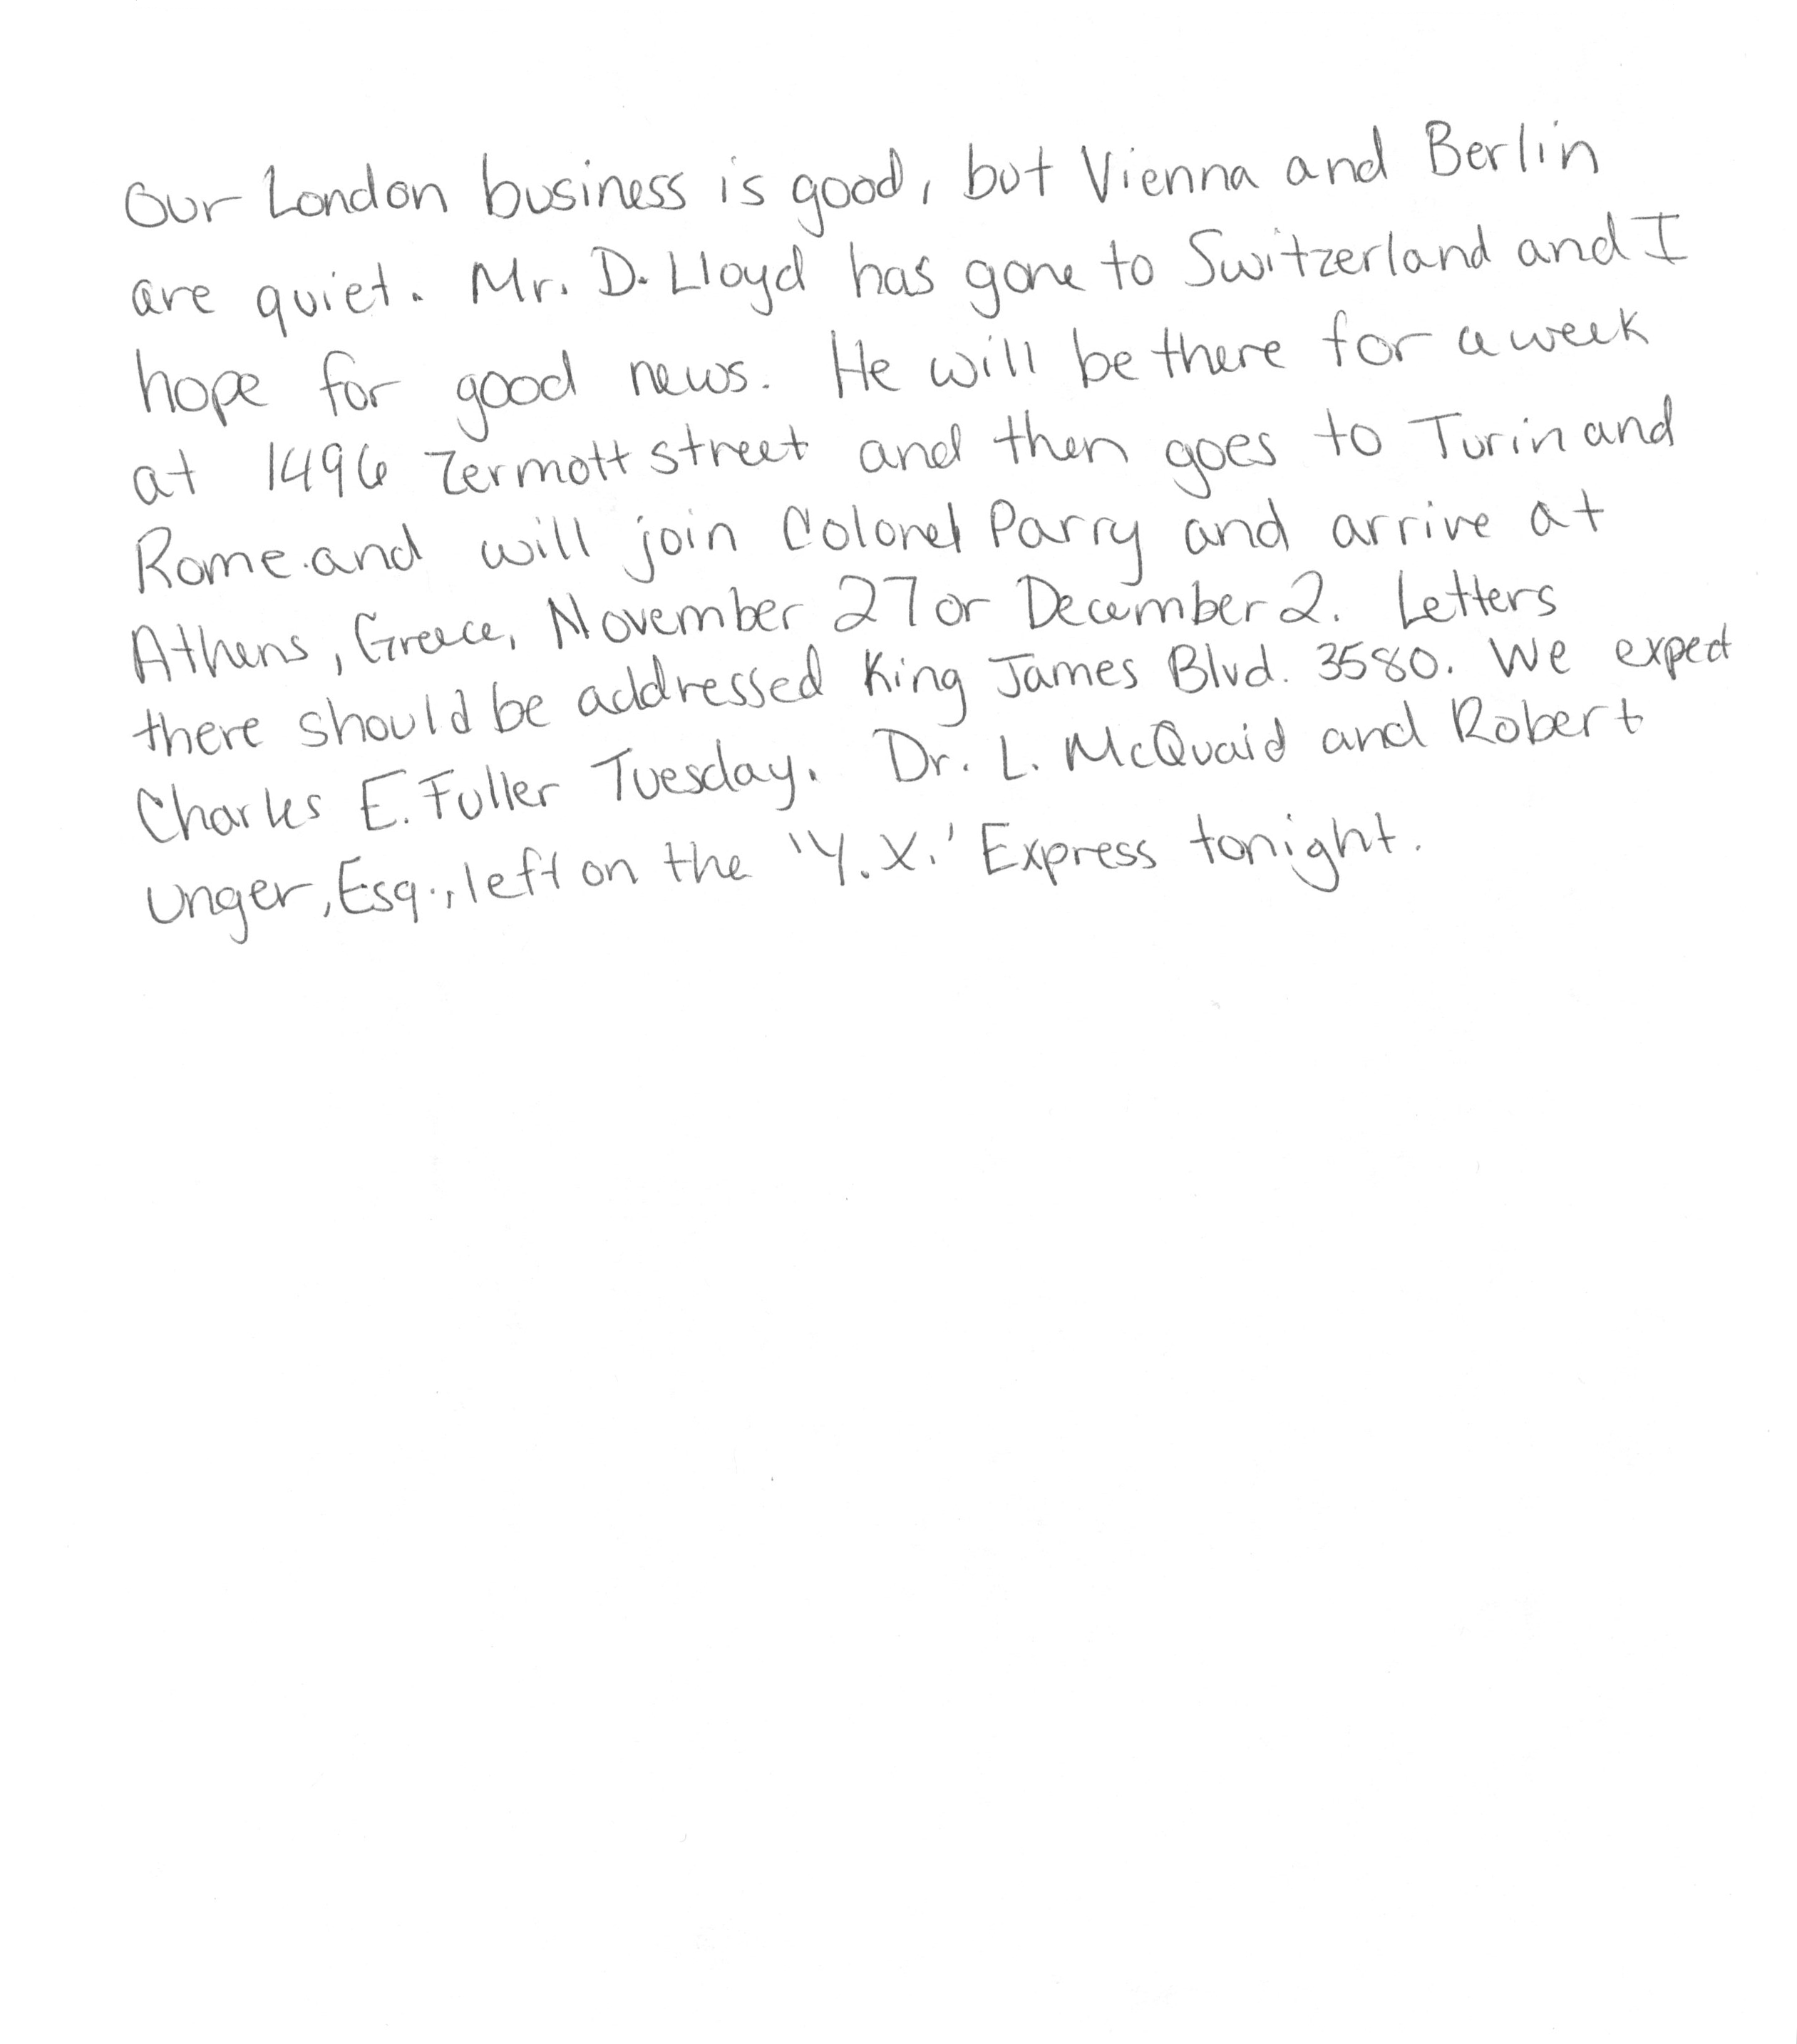 Our London business is good, but Vienna and Berlin
are quiet. Mr. D. Lloyd has gone to Switzerland and I
hope for good news. He will be there for a week
at 1496 Zermott street and then goes to Turin and
Rome.and will join Colonel Parry and arrive at
Athens, Greece, November 27 or December 2. Letters
there should be addressed King James Blvd. 3580. We expect
Charles E. Fuller Tuesday. Dr. L. McQuaid and Robert
Unger, Esq., left on the 'Y.X.' Express tonight.